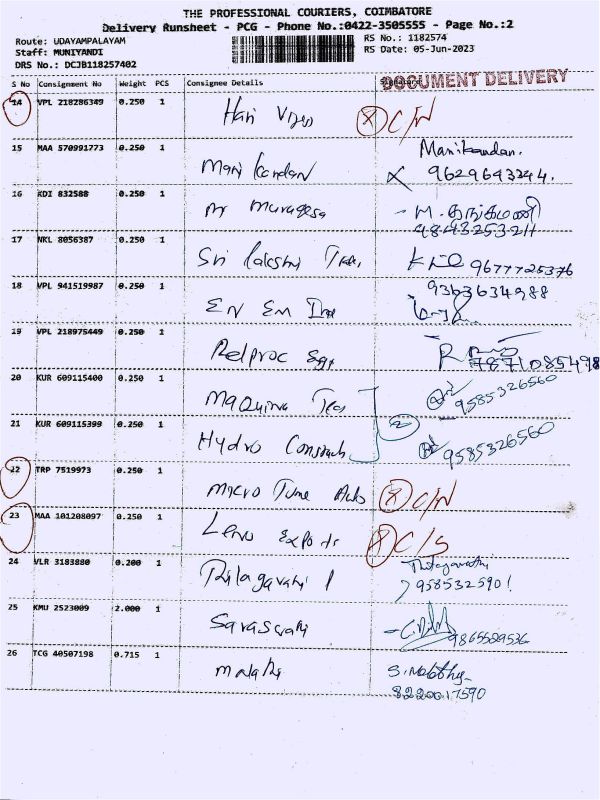 THE PROFESSIONAL COURIERS, COIMBATORE
Delivery Runsheet - PCG - Phone No.:0422-3505555 - Page No.:2
Route: UDAYAMPALAYAM RS No.: 1182574
Staff: MUNIYANDI RS Date: 05-Jun-2023
DRS No.: DCJB118257402
S No Consignment No Weight PCS Consignee Details
DOCUMENT DELIVERY
14 VPL 218286349 0.250 1 Hari C/N
15 MAA 570991773 0.250 1 Mani kandan Manikandan.
9629643244.
16 KDI 832588 0.250 1 Mr Murugesa M. தங்கமணி
9843253211
17 NKL 8056387 0.250 1 Sri Lakshmi 9677725376
18 VPL 941519987 0.250 1 EN EM 9363634988
19 VPL 218975449 0.250 1 Relproc 7871085498
20 KUR 609115400 0.250 1 Maquina 9585326560
21 KUR 609115399 0.250 1 Hydro 2 9585326560
22 TRP 7519973 0.250 1 Micro Tune Auto C/N
23 MAA 101208097 0.250 1 Exports C/S
24 VLR 3183880 0.200 1 Thilagavathi
9585325901
25 KMU 2523009 2.000 1 Saraswathi 9865529536
26 TCG 40507198 0.715 1 Malathi S. Malathy
8220017590